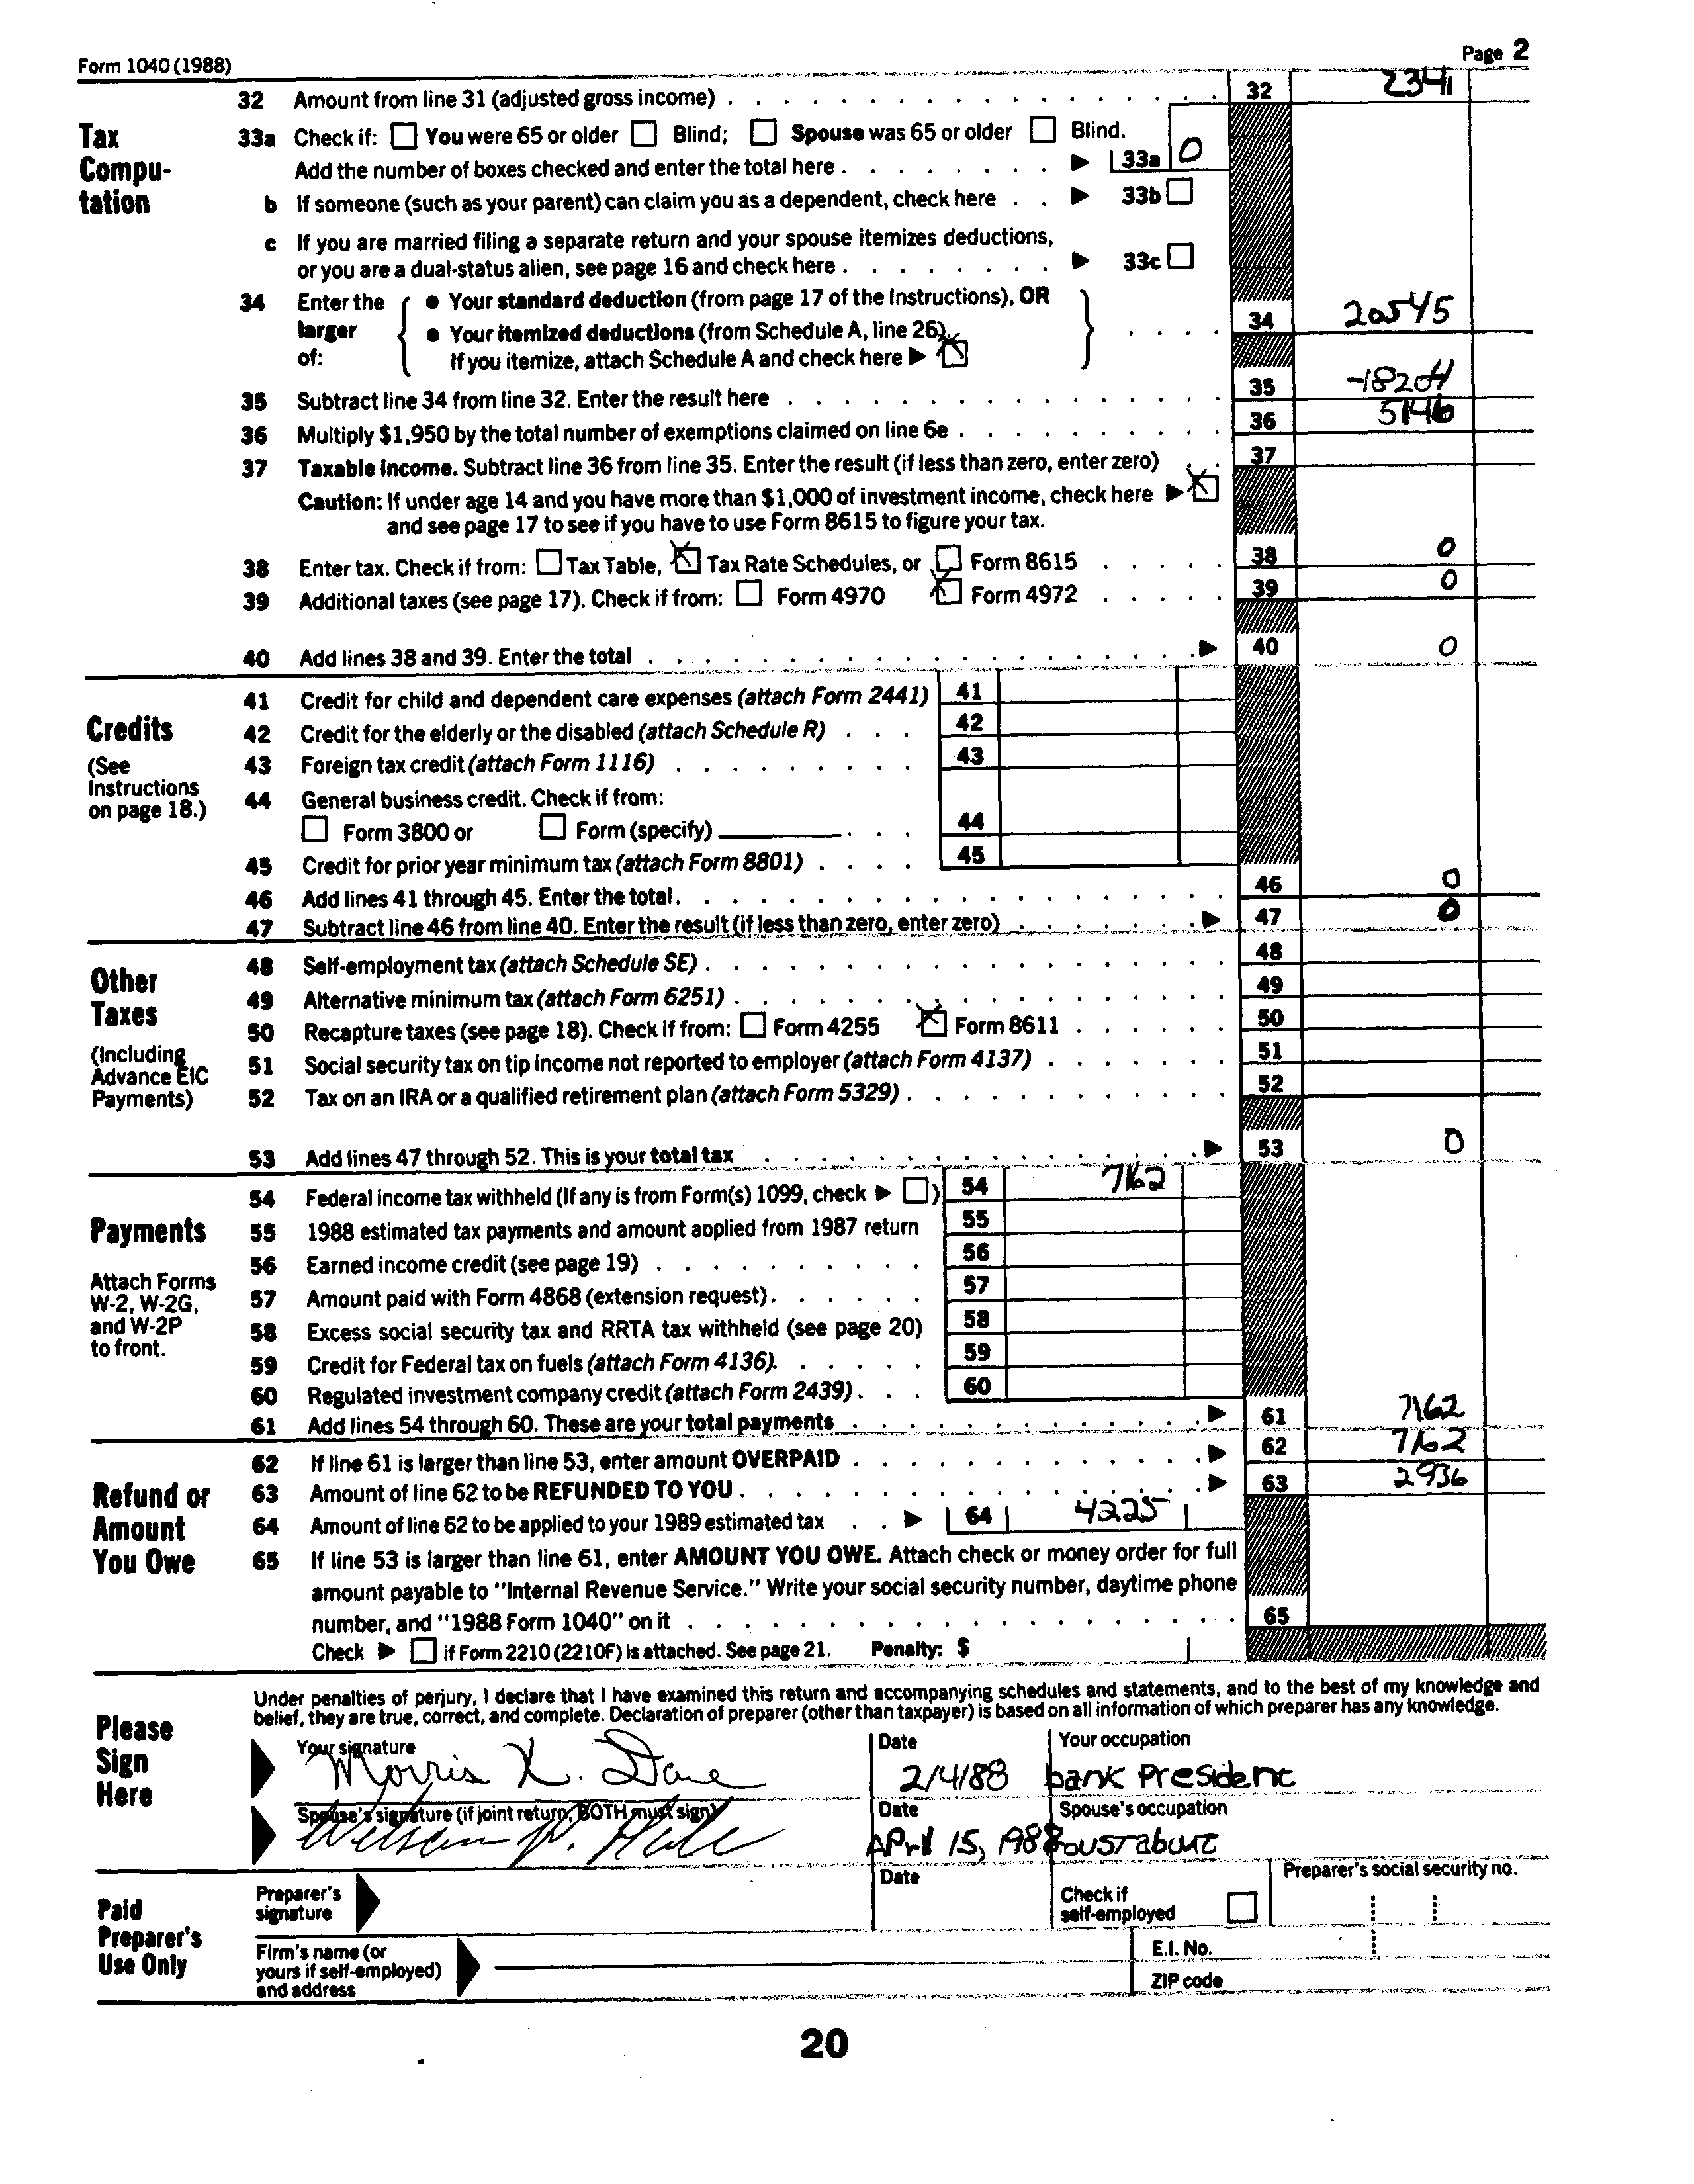 Form 1040 (1988) Page 2
32 Amount from line 31 (adjusted gross income) 32 2341
Tax Compu- tation
33a Check if: You were 65 or older Blind; Spouse was 65 or older Blind.
Add the number of boxes checked and enter the total here 33a 0
b If someone (such as your parent) can claim you as a dependent, check here 33b
c If you are married filing a separate return and your spouse itemizes deductions,
or you are a dual-status alien, see page 16 and check here 33c
34 Enter the larger of:
● Your standard deduction (from page 17 of the Instructions), OR
● Your itemized deductions (from Schedule A, line 26).
If you itemize, attach Schedule A and check here X 34 20545
35 Subtract line 34 from line 32. Enter the result here 35 -18204
36 Multiply $1,950 by the total number of exemptions claimed on line 6e 36 5146
37 Taxable income. Subtract line 36 from line 35. Enter the result (if less than zero, enter zero) 37
Caution: If under age 14 and you have more than $1,000 of investment income, check here X
and see page 17 to see if you have to use Form 8615 to figure your tax.
38 Enter tax. Check if from: Tax Table, X Tax Rate Schedules, or Form 8615 38 0
39 Additional taxes (see page 17). Check if from: Form 4970 X Form 4972 39 0
40 Add lines 38 and 39. Enter the total 40 0
Credits
(See Instructions on page 18.)
41 Credit for child and dependent care expenses (attach Form 2441) 41
42 Credit for the elderly or the disabled (attach Schedule R) 42
43 Foreign tax credit (attach Form 1116) 43
44 General business credit. Check if from:
Form 3800 or Form (specify) 44
45 Credit for prior year minimum tax (attach Form 8801) 45
46 Add lines 41 through 45. Enter the total 46 0
47 Subtract line 46 from line 40. Enter the result (if less than zero, enter zero) 47 0
Other Taxes
(Including Advance EIC Payments)
48 Self-employment tax (attach Schedule SE) 48
49 Alternative minimum tax (attach Form 6251) 49
50 Recapture taxes (see page 18). Check if from: Form 4255 X Form 8611 50
51 Social security tax on tip income not reported to employer (attach Form 4137) 51
52 Tax on an IRA or a qualified retirement plan (attach Form 5329) 52
53 Add lines 47 through 52. This is your total tax 53 0
Payments
Attach Forms W-2, W-2G, and W-2P to front.
54 Federal income tax withheld (If any is from Form(s) 1099, check ) 54 7162
55 1988 estimated tax payments and amount applied from 1987 return 55
56 Earned income credit (see page 19) 56
57 Amount paid with Form 4868 (extension request) 57
58 Excess social security tax and RRTA tax withheld (see page 20) 58
59 Credit for Federal tax on fuels (attach Form 4136) 59
60 Regulated investment company credit (attach Form 2439) 60
61 Add lines 54 through 60. These are your total payments 61 7162
Refund or Amount You Owe
62 If line 61 is larger than line 53, enter amount OVERPAID 62 7162
63 Amount of line 62 to be REFUNDED TO YOU 63 2936
64 Amount of line 62 to be applied to your 1989 estimated tax 64 4225
65 If line 53 is larger than line 61, enter AMOUNT YOU OWE. Attach check or money order for full
amount payable to "Internal Revenue Service." Write your social security number, daytime phone
number, and "1988 Form 1040" on it 65
Check if Form 2210 (2210F) is attached. See page 21. Penalty: $
Please Sign Here
Under penalties of perjury, I declare that I have examined this return and accompanying schedules and statements, and to the best of my knowledge and
belief, they are true, correct, and complete. Declaration of preparer (other than taxpayer) is based on all information of which preparer has any knowledge.
Your signature Date Your occupation
Morris K. Dane 2/4/88 bank President
Spouse's signature (if joint return, BOTH must sign) Date Spouse's occupation
April 15, 1988 roustabout
Paid Preparer's Use Only
Preparer's signature Date Check if self-employed Preparer's social security no.
Firm's name (or yours if self-employed) and address E.I. No.
ZIP code
20